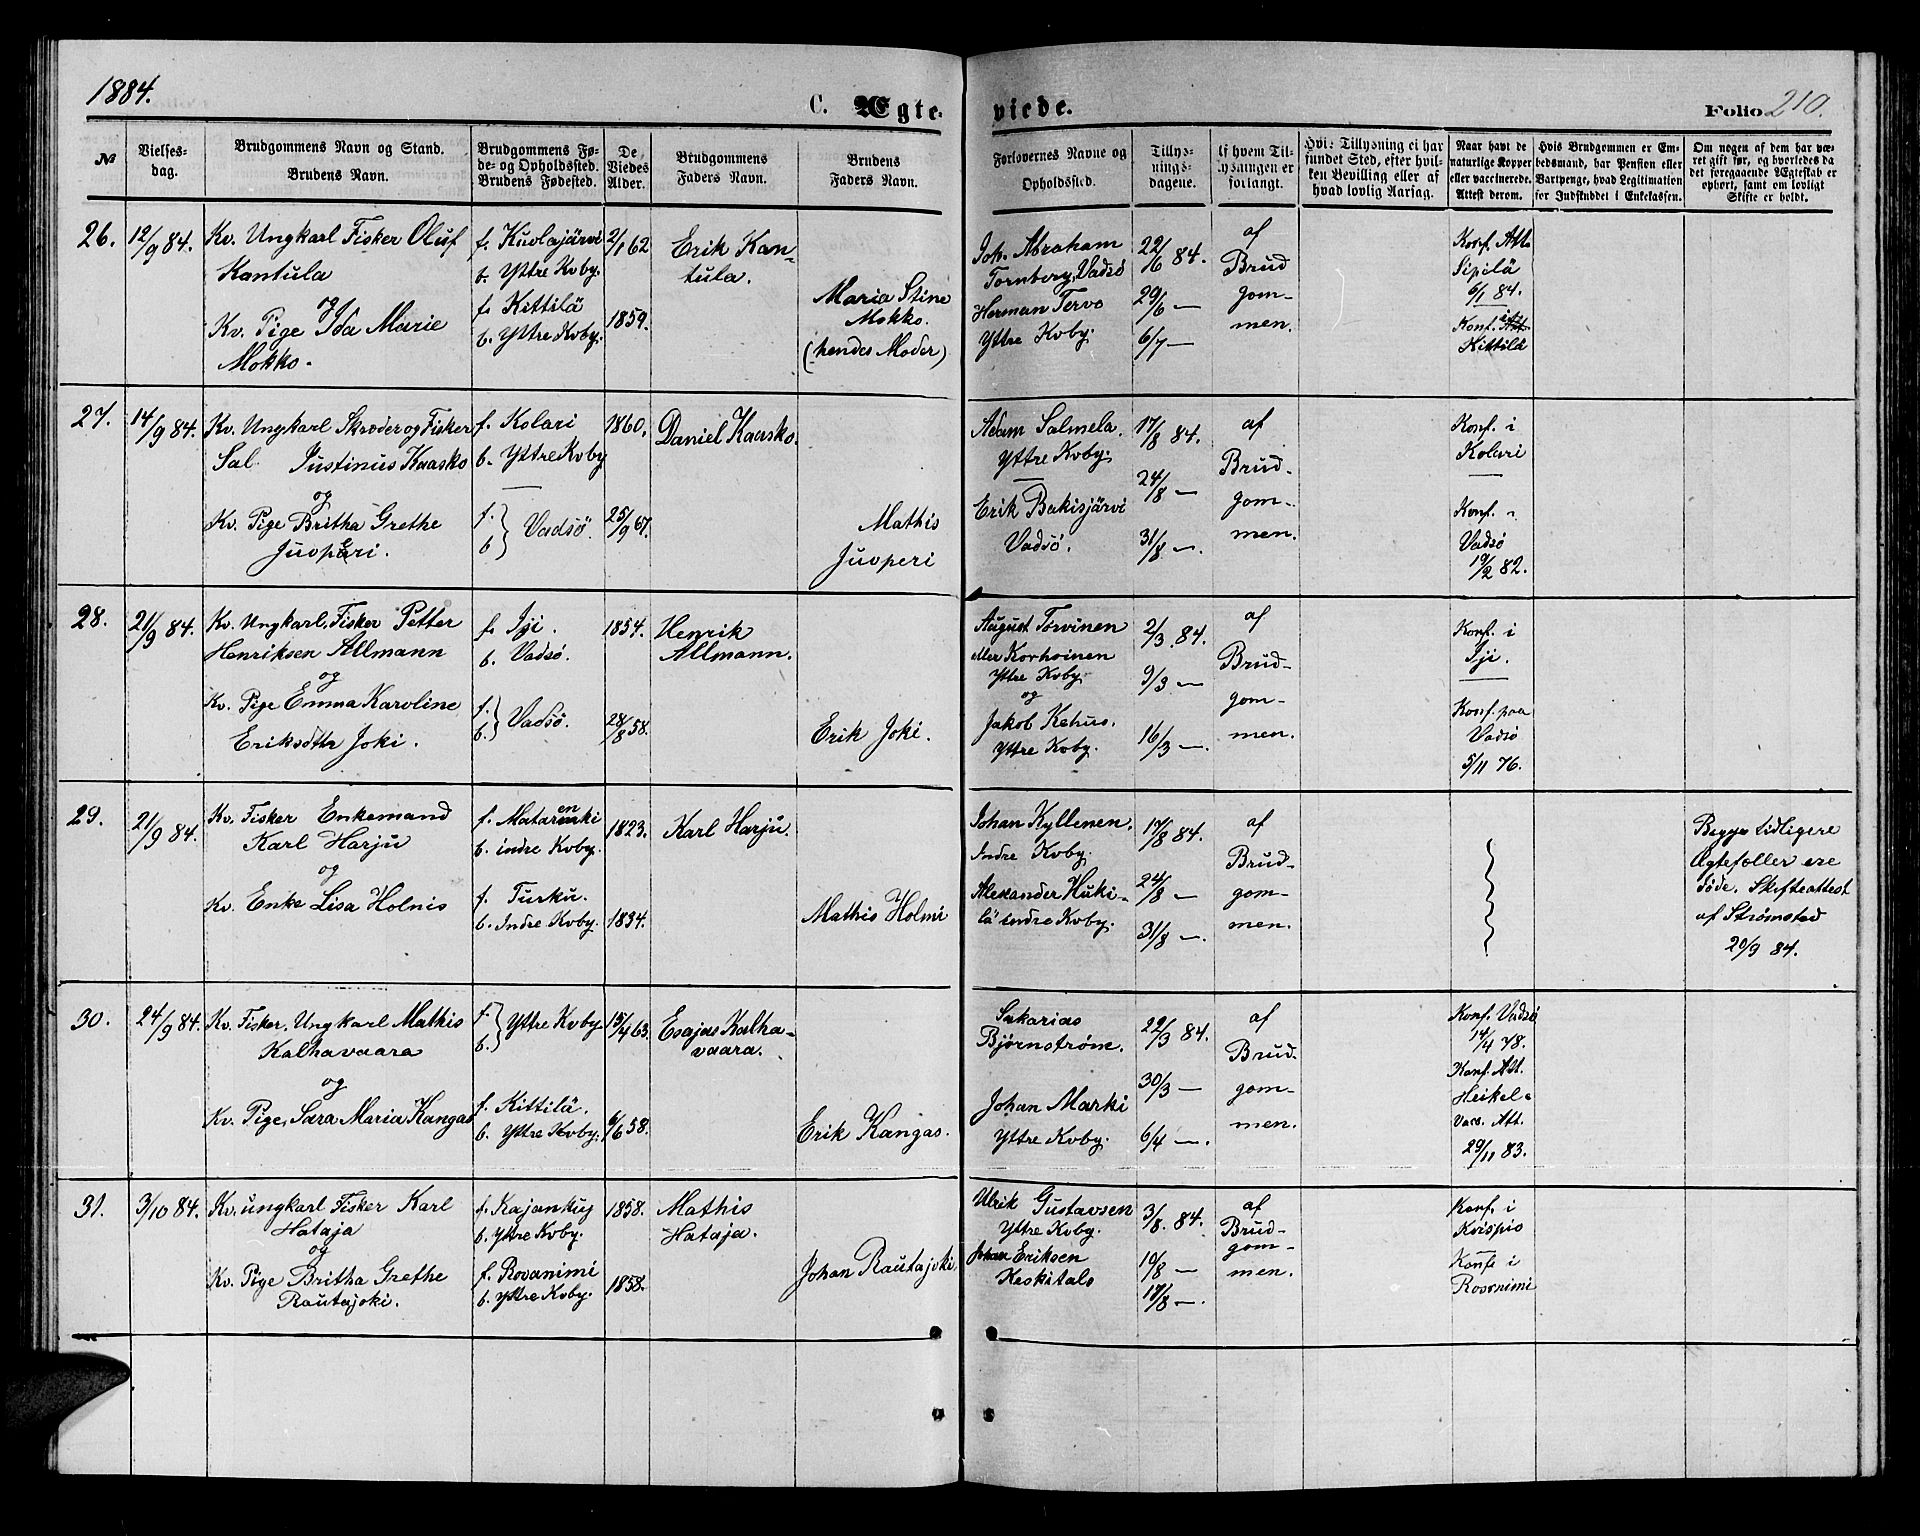 1884.
C. Ægte-
viede.
Folio 210.
№
Vielses-
dag.
Brudgommens Navn og Stand.
Brudens Navn.
Brudgommens Fø-
de- og Opholdssted.
Brudens Fødested.
De
Viedes
Alder.
Brudgommens
Faders Navn.
Brudens
Faders Navn.
Forlovernes Navne og
Opholdssted.
Tillys-
nings-
dagene.
Af hvem Til-
lysningen er
forlangt.
Hvis Tillysning ei har
fundet Sted, efter hvil-
ken Bevilling eller af
hvad lovlig Aarsag.
Naar havt de
naturlige Kopper
eller vaccinerede.
Attest derom.
Hvis Brudgommen er Em-
bedsmand, har Pension eller
Vartpenge, hvad Legitimation
for Indskuddet i Enkekassen.
Om nogen af dem har væ-
ret gift før, og hvorledes da
det foregaaende Ægteskab er
ophørt, samt om lovligt
Skifte er holdt.
26.
12/9 84.
Kv. Ungkarl Fisker Oluf
Kantula
og
Kv. Pige Ida Marie
Mokko.
f. Kuolajärvi
b. Yttre Kvby.
f. Kittilä
b. Yttre Kvby.
2/1 62
1859.
Erik Kan-
tula.
Maria Stine
Mokko.
(hendes Moder)
Joh. Abraham
Tornberg, Vadsö
Herman Tervo
Yttre Kvby.
22/6 84.
29/6 —
6/7 —
af
Brud
gom-
men.
Konf. Att.
Sipilä
6/1 84.
Konf. i
Kittilä
27.
14/9 84.
Kv. Ungkarl Skræder og Fisker
Sal. Justinus Kaasko
og
Kv. Pige Britha Grethe
Juoperi.
f. Kolari
b. Yttre Kvby
f.
b. } Vadsö.
1860.
25/9 67.
Daniel Kaasko.
Mathis
Juoperi
Adam Salmela.
Yttre Kvby.
Erik Bakisjärvi
Vadsö.
17/8 84.
24/8 —
31/8 —
af
Brud-
gom-
men.
Konf. i
Kolari
Konf. i
Vadsö
19/2 82.
28.
21/9 84.
Kv. Ungkarl, Fisker Petter
Henriksen Allmann
og
Kv. Pige Emma Karoline
Eriksdttr Joki.
f. Iji.
b. Vadsö.
f.
b. } Vadsö.
1854.
28/8 58.
Henrik
Allmann.
Erik Joki.
August Torvinen
eller Korhoinen
Yttre Kvby
og
Jakob Kehus.
Yttre Kvby.
2/3. 84.
9/3 —
16/3 —.
af
Brud-
gom-
men.
Konf. i
Iji.
Konf. paa
Vadsö
5/11 76.
29.
21/9 84.
Kv. Fisker Enkemand
Karl Harju
og
Kv. Enke Lisa Holnis
f. Matarenki
b. indre Kvby.
f. Turku.
b. Indre Kvby.
1823.
1834.
Karl Harju.
Mathis Holmi
Johan Kyllenen.
Indre Kvby.
Alexander Huki-
lä indre Kvby.
17/8 84.
24/8 —
31/8 —.
af
Brud-
gom-
men.
Begges tidligere
Ægtefæller ere
døde. Skifteattest
af Strømsted
20/9 84.
30.
24/9 84.
Kv. Fisker, Ungkarl Mathis
Kalhavaara
og
Kv. Pige, Sara Maria Kangas
f.
b. } Yttre Kvby.
f. Kittilä.
b. Yttre Kvby.
15/4 63.
6/6 58.
Esajas Kalha-
vaara.
Erik Kangas.
Sakarias
Bjørnstrøm.
Johan Marki
Yttre Kvby.
22/3 84.
30/3 —
6/4 —.
af
Brud-
gom-
men.
Konf. Vadsö
14/4 78.
Konf. Att.
Heikel.
Vacc. Att.
29/11 83.
31.
3/10 84.
Kv. ungkarl Fisker Karl
Hataja
og
Kv. Pige Britha Grethe
Rautajoki.
b. Yttre Kvby.
f. Rovanimi
b. Yttre Kvby.
1858.
1858.
Mathis
Hataja.
Johan Rautajoki.
Ulrik Gustavsen
Yttre Kvby.
Johan Eriksen
Keskitalo
3/8. 84.
10/8 —
17/8 —.
af
Brud-
gom-
men.
Konf. i
Konf. i